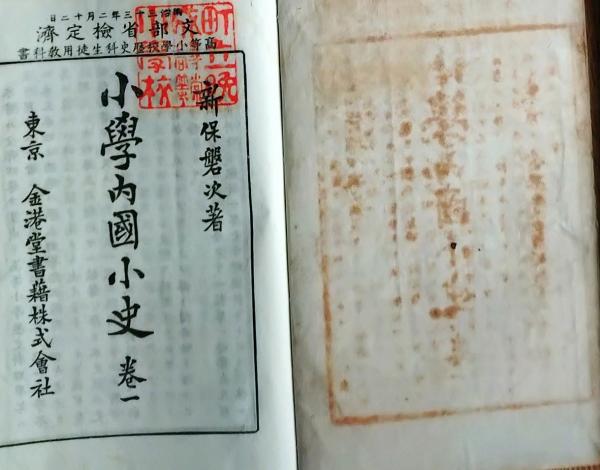 明治二十三年二月十二日
文部省檢定濟
高等小學校歷史科生徒用教科書
新保磐次著
小學内國小史 卷一
東京 金港堂書籍株式會社